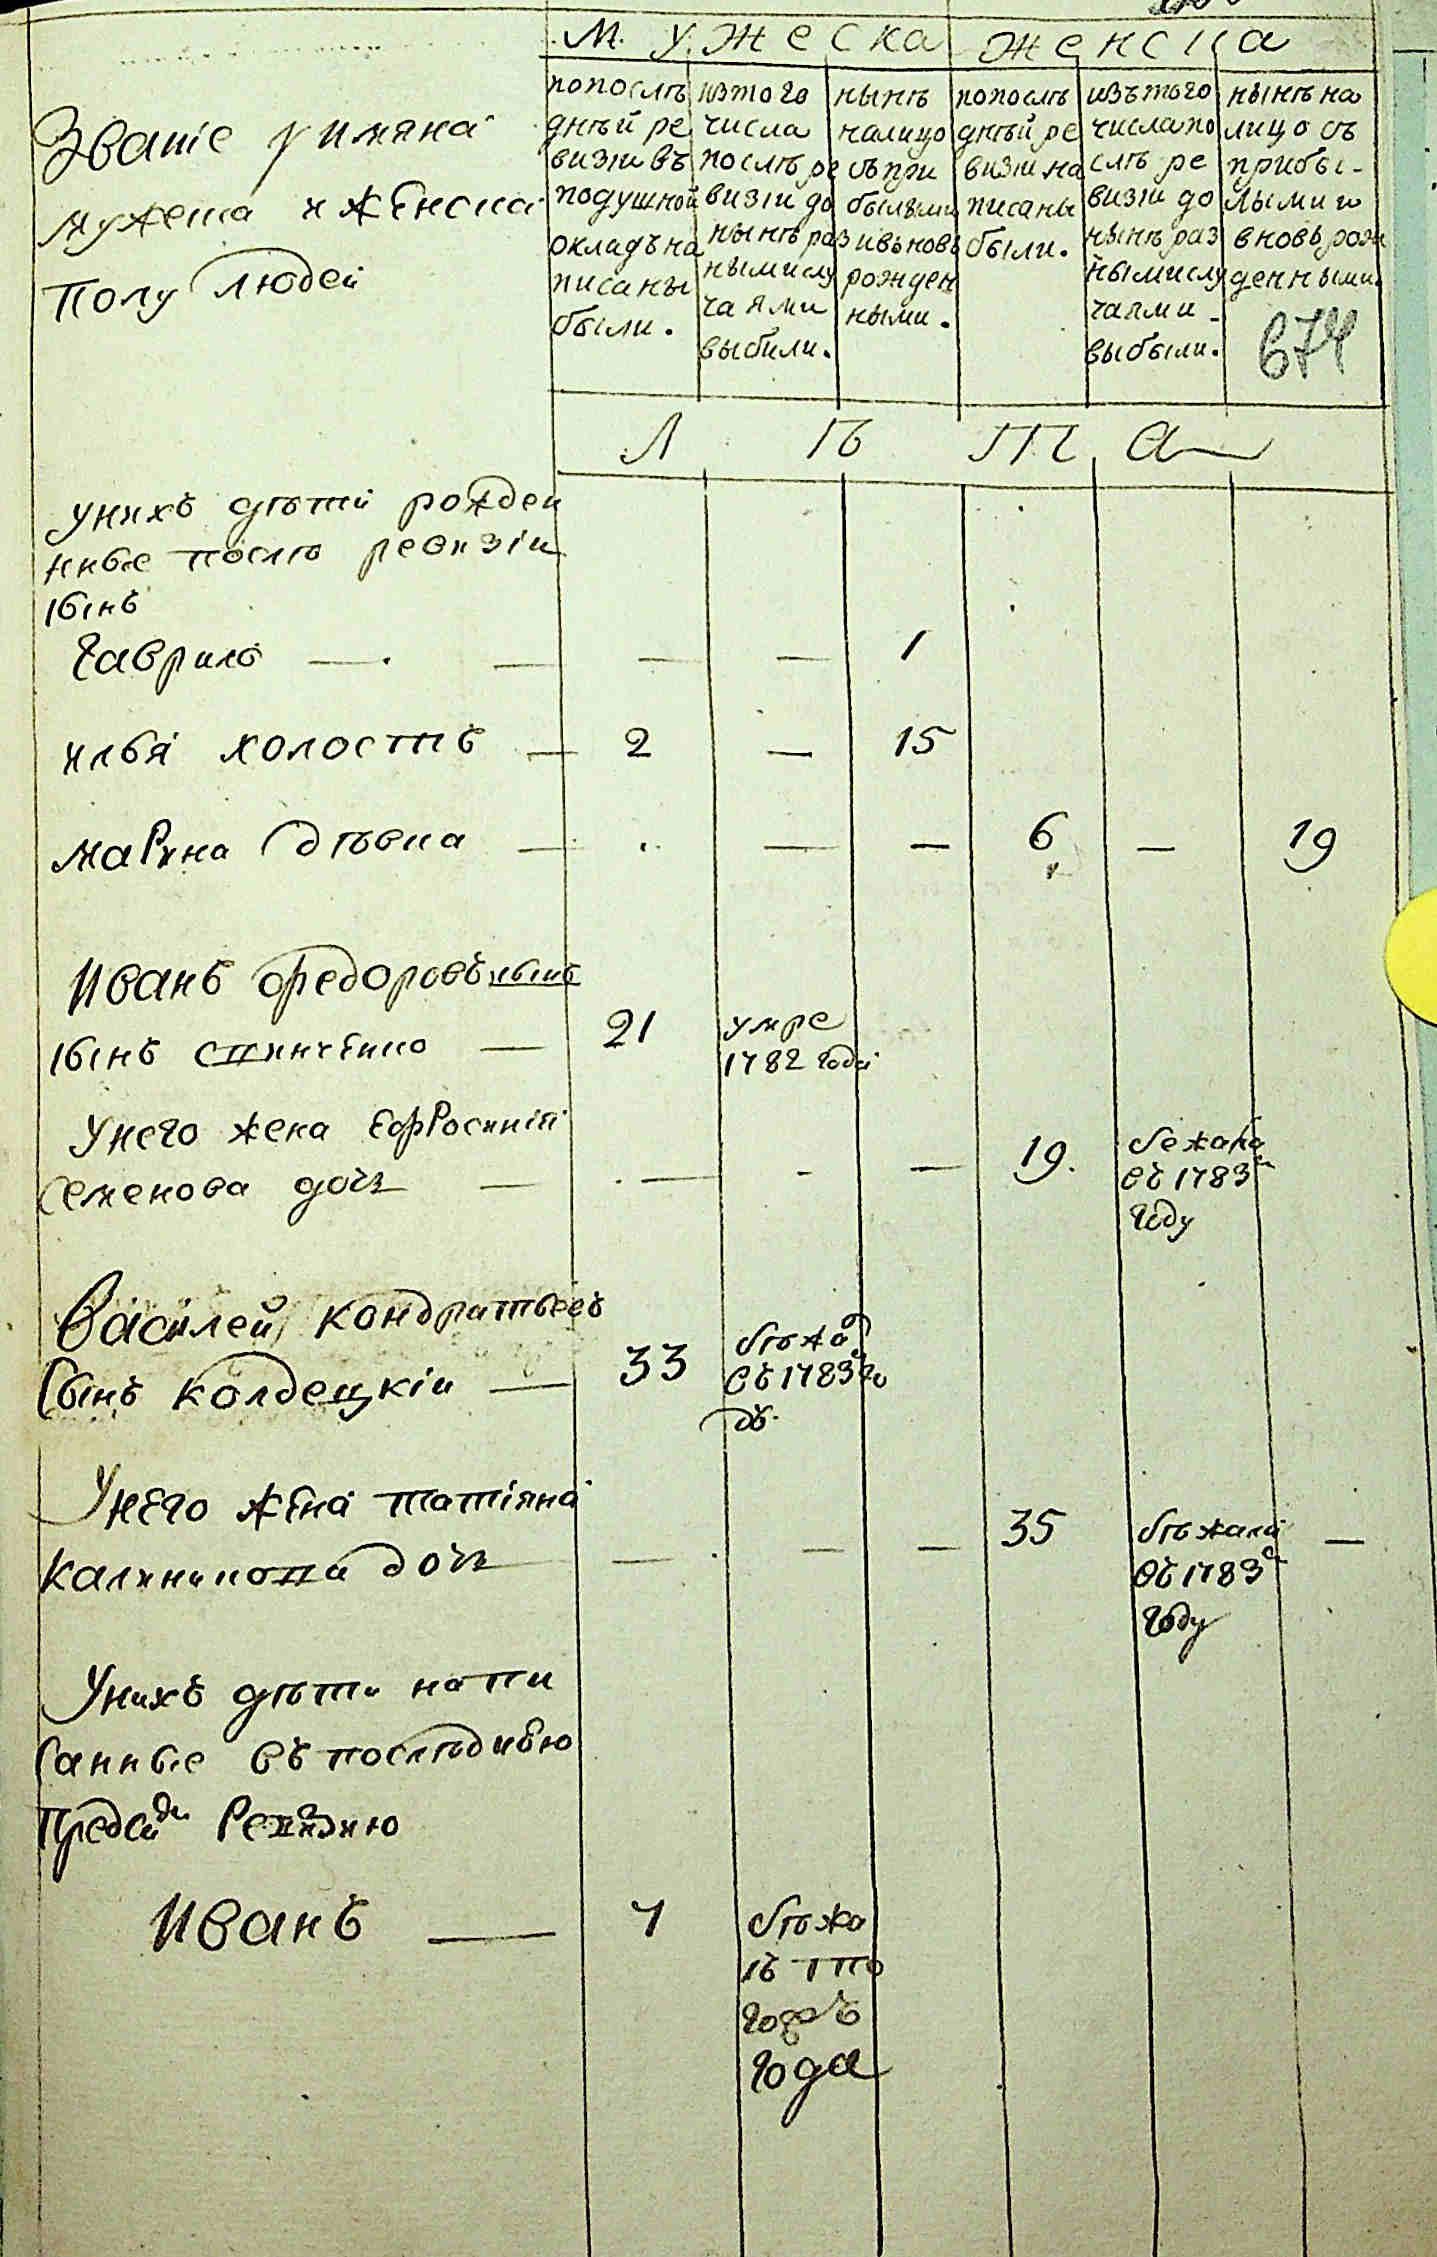 мужеска женска
Званіе у имяна
мужеска и женска
полу людей
попослѣ
дней ре
визіи въ
подушной
окладъ на
писаны
были.
изтого
числа
послѣ ре
визіи до
нынѣ раз
ными слу
чаями
выбили.
нынѣ
налицо
съ при
былыми
ивьновь
рожден
ными.
попослѣ
дней ре
визіи на
писаны
были.
изътого
числа по
слѣ ре
визіи до
нынѣ раз
ными слу
чаями
выбыли.
нынѣ на
лицо съ
прибы-
лыми и
вновь рож
денными.
674
Л ѣ т а
унихъ дѣтей рожден
ные послѣ ревизіи
сынъ
Гаврило — — — — 1
илья холостъ — 2 — 15
марина дѣвка — — — 6 — 19
Иванъ федоровъ
сынъ — 21 умре
1782 года
Унего жена Ефросинія
Семенова дочь — — - — 19. бежала
въ 1783м
году
Василей кондратьевъ
Сынъ колдецкій — 33 бѣжал
въ 1783 го
дѣ.
Унего жена татіяна
калиникова дочь — — — 35 бѣжала —
въ 1783м
году
Унихъ дѣти напи
санные въ последнюю
пред Ревизию
Иванъ — 7 бѣжа
лъ тго
года